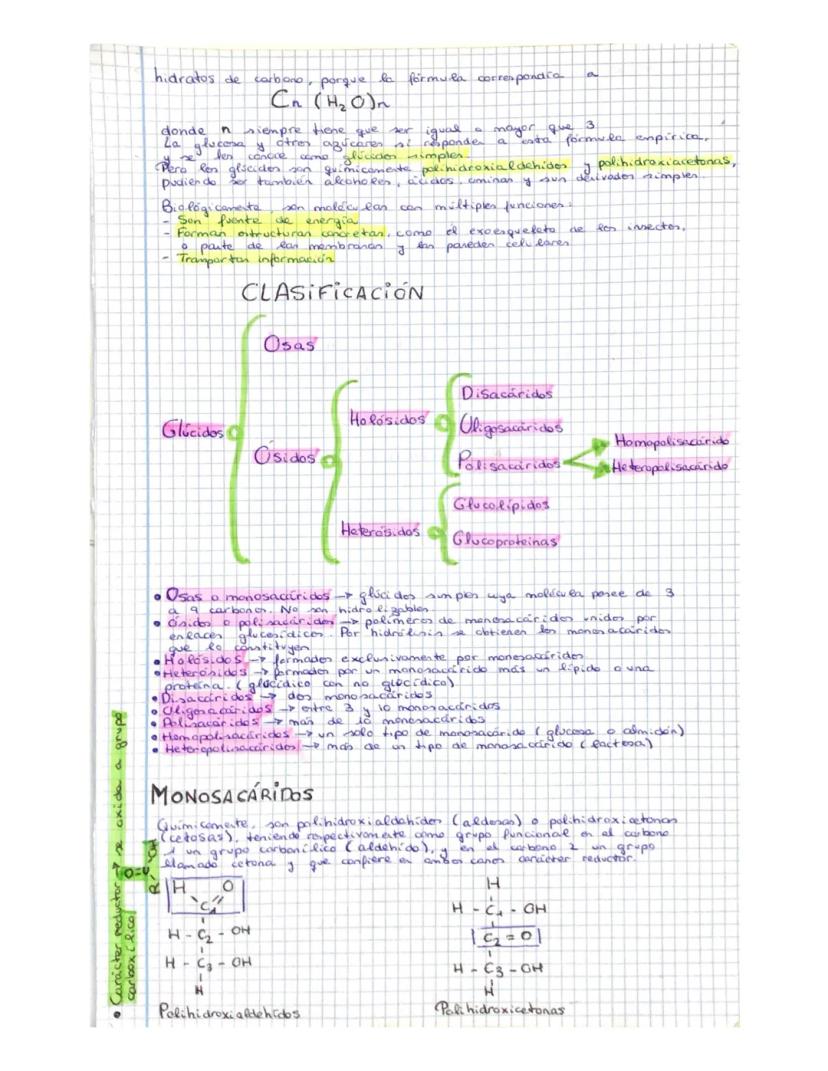 hidratos de carbono, porque la fórmula correspondía a
Cn (H2O)n
donde n siempre tiene que ser igual o mayor que 3
La glucosa y otros azúcares sí responden a esta fórmula empírica,
y se les conoce como glúcidos simples.
Pero los glúcidos son químicamente polihidroxialdehidos y polihidroxiacetonas,
pudiendo ser también alcoholes, ácidos, aminas y sus derivados simples.
Biológicamente, son moléculas con múltiples funciones:
- Son fuente de energía
- Forman estructuras concretas, como el exoesqueleto de los insectos,
o parte de las membranas y las paredes celulares
- Transportan información
CLASIFICACIÓN
Glúcidos
Osas
Ósidos
Holósidos
Disacáridos
Oligosacáridos
Polisacáridos
Homopolisacárido
Heteropolisacárido
Heterósidos
Glucolípidos
Glucoproteínas
• Osas o monosacáridos → glúcidos simples cuya molécula posee de 3
a 9 carbonos. No son hidrolizables
• Ósidos o polisacáridos → polímeros de monosacáridos unidos por
enlaces glucosídicos. Por hidrólisis se obtienen los monosacáridos
que lo constituyen
• Holósidos → formados exclusivamente por monosacáridos
• Heterósidos → formados por un monosacárido más un lípido o una
proteína. (glucídico con no glucídico)
• Disacáridos → dos monosacáridos
• Oligosacáridos → entre 3 y 10 monosacáridos
• Polisacáridos → más de 10 monosacáridos
• Homopolisacáridos → un solo tipo de monosacárido (glucosa o almidón)
• Heteropolisacáridos → más de un tipo de monosacárido (lactosa)
MONOSACÁRIDOS
Químicamente, son polihidroxialdehidos (aldosas) o polihidroxicetonas
(cetosas), teniendo respectivamente como grupo funcional en el carbono
1 un grupo carbonílico (aldehído), y en el carbono 2 un grupo
llamado cetona y que confiere en ambos casos carácter reductor.
• Carácter reductor → se oxida a grupo
carboxílico
R-C-OH
O
H O
C1
H - C2 - OH
H - C3 - OH
H
Polihidroxialdehídos
H
H - C1 - OH
C2 = O
H - C3 - OH
H
Polihidroxicetonas